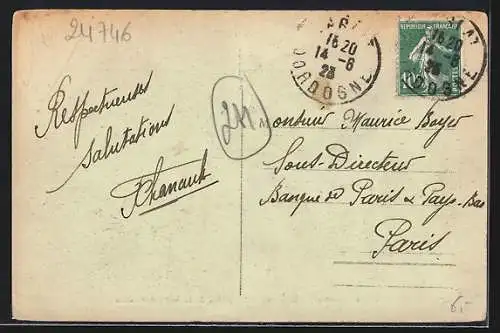 24746
15 20
14 - 6
23
DORDOGNE
REPUBLIQUE FRANÇAISE
10
24
Respectueuses
Salutations
Monsieur Maurice Boyer
Sous-Directeur
Banque de Paris & Pays-Bas
Paris
6.-